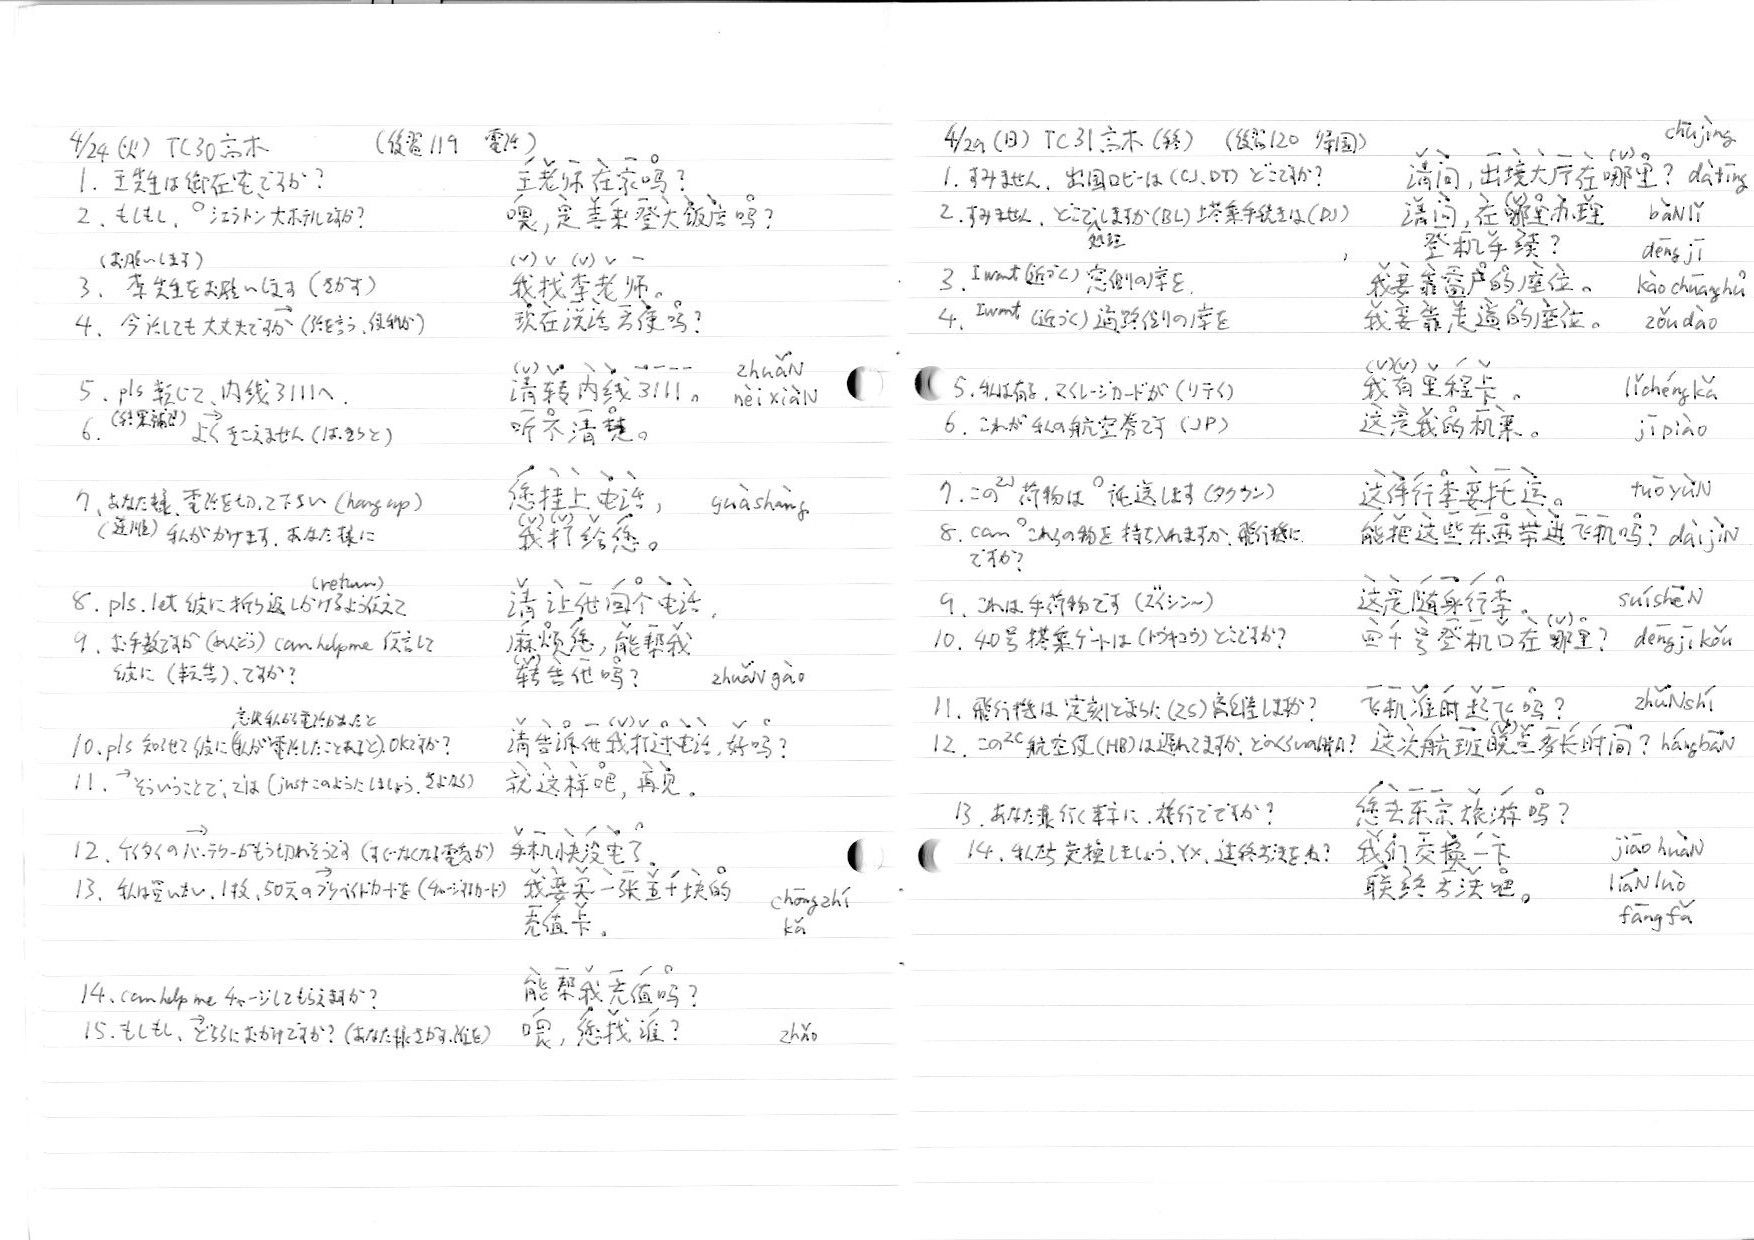 4/24(火) TC30高木 (復習119 電話)
1. 王先生は御在宅ですか? 王老师在家吗?
2. もしもし、°シェラトン大ホテルですか? 喂,是喜来登大饭店吗?
(お願いします)
3. 李先生をお願いします(さがす) 我找李老师。
4. 今話しても大丈夫ですか(話を言う、便利か) 现在说话方便吗?
5. pls 転じて、内線3111へ. 请转内线3111。 zhuǎN
nèixiàN
6. (結果補語) よくきこえません(はっきりと) 听不清楚。
7. あなた様、電話を切って下さい(hang up) 您挂上电话, guàshàng
(連順) 私がかけます、あなた様に 我打给您。
(return)
8. pls. let 彼に折り返しかけるよう伝えて 请让他回个电话.
9. お手数ですが(めんどう) can help me 伝言して 麻烦您,能帮我
彼に(転告)、ですか? 转告他吗? zhuǎNgào
10. pls 知らせて彼に(私が電話したことあると)、OKですか? 请告诉他我打过电话,好吗?
11. →そういうことで、では(justこのようにしましょう、さよなら) 就这样吧,再见.
12. ケイタイのバッテリーがもう切れそうです(すぐなくなる電気が) 手机快没电了.
13. 私は買いたい、1枚、50元のプリペイドカードを(チャージカード) 我要买一张五十块的 chōngzhí
充值卡。 kǎ
14. can help me チャージしてもらえますか? 能帮我充值吗?
15. もしもし、どちらにおかけですか?(あなた様さがす、誰を) 喂,您找谁? zhǎo
4/29(日) TC31高木(終) (復習120 帰国) chūjìng
1. すみません、出国ロビーは(CJ、DT) どこですか? 请问,出境大厅在哪里? dàtīng
2. すみません、どこでしますか(BL) 搭乗手続きは(DJ) 请问,在哪里办理 bàNlǐ
処理 登机手续? dēngjī
3. I want(近づく)窓側の席を. 我要靠窗户的座位。 kàochuānghù
4. I want(近づく)通路側の席を 我要靠走道的座位。 zǒudào
5. 私は有る、マイレージカードが(リテイ) 我有里程卡。 lǐchéngkǎ
6. これが私の航空券です(JP) 这是我的机票。 jīpiào
7. この荷物は°託送します(タクウン) 这件行李要托运。 tuōyùN
8. can °これらの物を持ち入れますか、飛行機に 能把这些东西带进飞机吗? dàijìN
ですか?
9. これは手荷物です(ズイシン〜) 这是随身行李。 suíshēN
10. 40号搭乗ゲートは(トウキコウ)どこですか? 四十号登机口在哪里? dēngjīkǒu
11. 飛行機は定刻どおりに(ZS)離陸しますか? 飞机准时起飞吗? zhǔNshí
12. この2C航空便(HB)は遅れてますか、どのくらいの時間? 这次航班晚点多长时间? hángbāN
13. あなた様行く東京に、旅行でですか? 您去东京旅游吗?
14. 私たち交換しましょう、YX、連絡方法をね? 我们交换一下 jiāohuàN
联络方法吧。 liáNluò
fāngfǎ